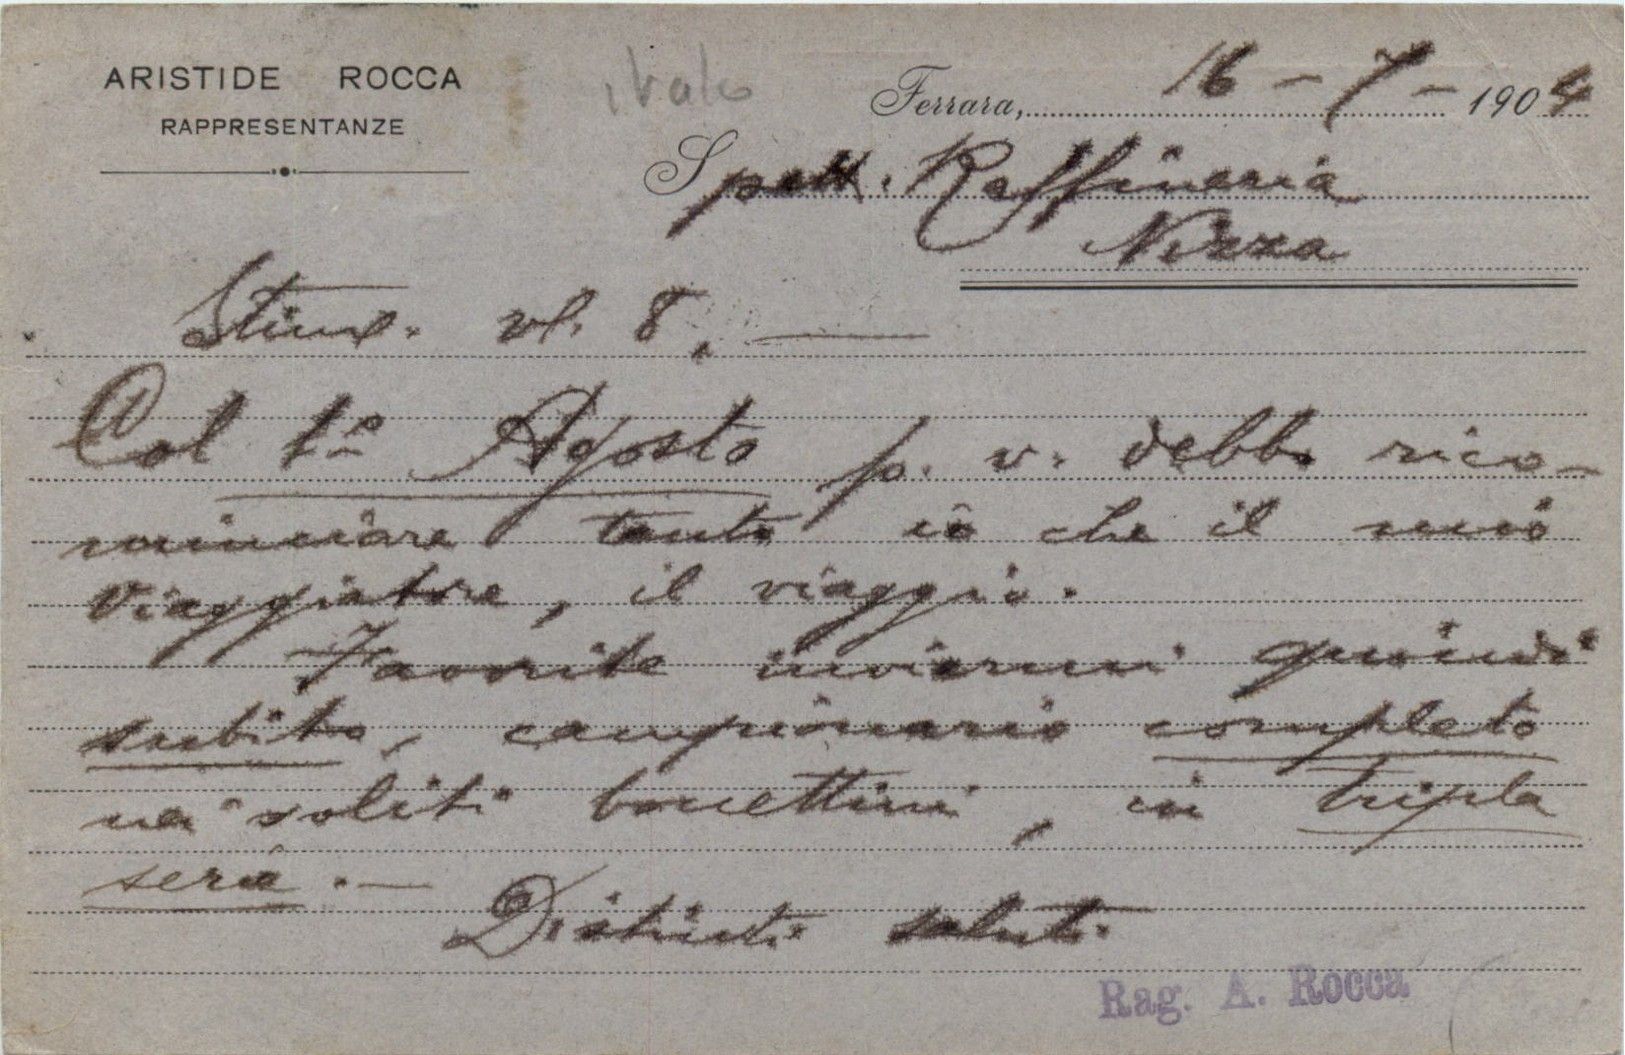 ARISTIDE ROCCA
RAPPRESENTANZE
Ferrara, 16 - 7 - 1904
Spett. Raffineria
Nizza
Stim. 8. —
Col 1º Agosto p. v. debbo rico-
minciare tanto io che il mio
viaggiatore, il viaggio.
Favorite inviarmi quindi
subito, campionario completo
nei soliti boccettini, in tripla
serie. —
Distinti saluti
Rag. A. Rocca